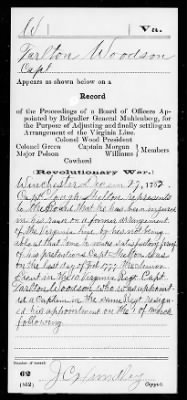 W Va.
Tarlton Woodson
Capt
Appears as shown below on a
Record
of the Proceedings of a Board of Officers Ap-
pointed by Brigadier General Muhlenberg, for
the Purpose of Adjusting and finally settling an
Arrangement of the Virginia Line.
Colonel Wood President
Colonel Green Captain Morgan
Major Poison Williams Members
Cowherd
(Revolutionary War.)
Winchester Jan 17, 1783.
Capt Clough Shelton represents
to the Board that he has been injured
in his rank in a former arrangement
of the Virginia line by his not being
able at that time to make satisfactory proof
of his pretentions Capt Shelton was
on the last day of Feb 1777 1st Lieutenant
in 10 Virginia Regt Capt
Tarlton Woodson who was appoint-
ed a Captain in the same Regt resign-
ed his appointment on the 1 of March
following
Number of record:
62
(542) Copyist.